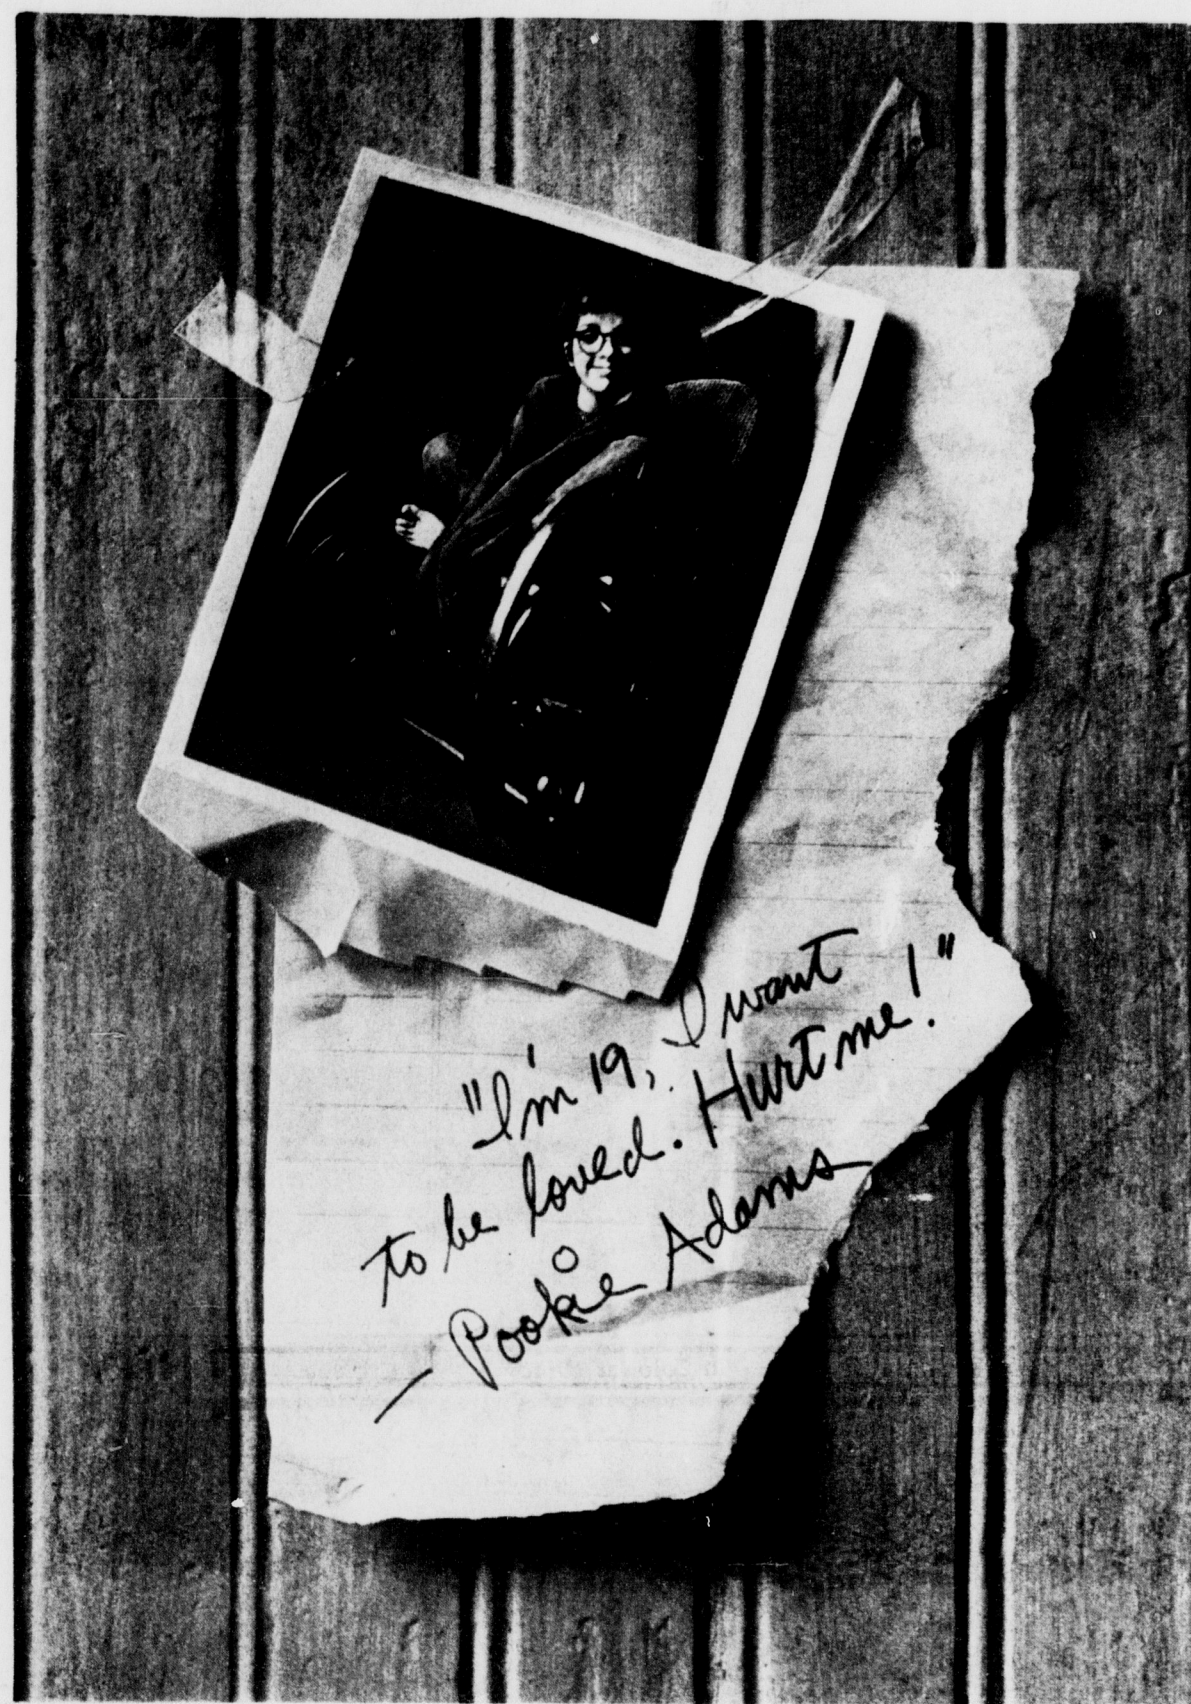 "I'm 19, I want
to be loved. Hurt me!"
— Pookie Adams